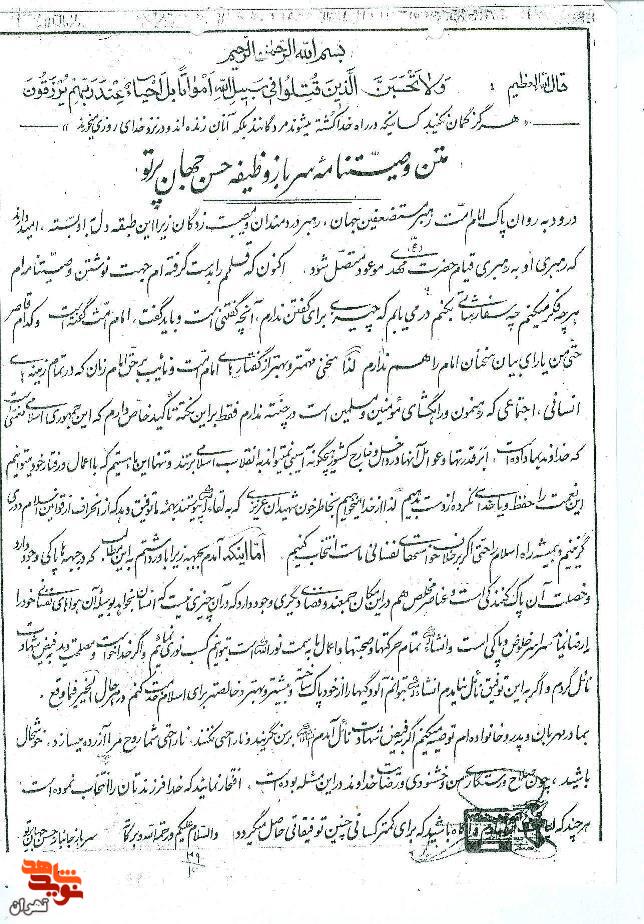 بسم الله الرحمن الرحیم
قال الله العظیم : ولا تحسبن الذین قتلوا فی سبیل الله امواتا بل احیاء عند ربهم یرزقون
« هرگز گمان نکنید کسانیکه در راه خدا کشته میشوند مردگانند بلکه آنان زنده اند و در نزد خدای روزی میخورند »
متن وصیتنامه سرباز وظیفه حسن جهان پرتو
درود به روان پاک امام امت رهبر مستضعفین جهان، رهبر دردمندان و مصیبت زدگان زیرا این طبقه دل به او بسته، امید دارند
که رهبری او به رهبری قیام حضرت مهدی (عج) موعود متصل شود. اکنون که قلم را بدست گرفته ام جهت نوشتن وصیتنامه ام
هر چه فکر میکنم چه سفارشاتی بکنم در می یابم که چیزی برای گفتن ندارم، آنچه گفتنی است و باید گفت، امام امت گفته است و کلام قاصر
حتی من یارای بیان سخنان امام را هم ندارم لذا سخنی مهمتر و بهتر از گفتارهای امام امت و نایب بر حق امام زمان که در تمام زمینه های
انسانی، اجتماعی که رهنمون و راهگشای مؤمنین و مسلمین است در چنته ندارم فقط بر این نکته تأکید خاص دارم که این جمهوری اسلامی نعمتی است
که خداوند بما داده است، ابرقدرتها و عوامل آنها در داخل و خارج کشور هیچگونه آسیبی نمیتوانند به انقلاب اسلامی بزنند و تنها این ما هستیم که با اعمال و رفتار خود میتوانیم
این نعمت را حفظ و یا خدای نکرده از دست بدهیم لذا از خدا میخواهیم بخاطر خون شهیدان عزیزی که به لقاء الله پیوستند بهمه ما توفیق دهد که از انحراف از قوانین اسلام دوری
گزینیم و همیشه راه اسلام را حتی اگر بر خلاف خواستهای نفسانی ماست انتخاب کنیم. اما اینکه آمدم بجبهه زیرا باور داشتم به این مطلب که در جبهه ها پاکی وجود دارد
و خصلت آن پاک کنندگی است و عناصر مخلص هم در این مکان جمعند و فضای دیگری وجود دارد که در آن چیزی نیست که انسان بخواهد بوسیله آن هواهای نفسانی خود را
ارضا نماید سراسر خلوص و پاکی است و انشاءالله تمام حرکتها و صحبتها و اعمال ما به سمت نور الله است بتوانیم کسب نوری نمائیم و اگر خدا خواست و مصلحت دید به فیض شهادت
نائل گردم و اگر به این توفیق نائل نیایم انشاءالله بتوانم آلودگیها را از خود پاک ساخته و بیشتر و بهتر و خالصتر برای اسلام خدمت کنم در هر حال الخیر فی ما وقع .
بمادر مهربان و پدر و خانواده ام توصیه میکنم اگر بفیض شهادت نائل آمدم انشاءالله بر من نگریند و ناراحتی نکنند. ناراحتی شما روح مرا آزرده میسازد، خوشحال
باشید، چون صلاح و رستگاری من و خشنودی و رضایت خداوند در این مسئله بوده است، افتخار نمائید که خدا فرزندتان را انتخاب نموده است
هر چند که آگاه باشید که برای کمتر کسانی چنین توفیقاتی حاصل میگردد والسلام علیکم و رحمة الله و برکاته سرباز جانباز حسن جهان پرتو
نوید شاهد
تهران